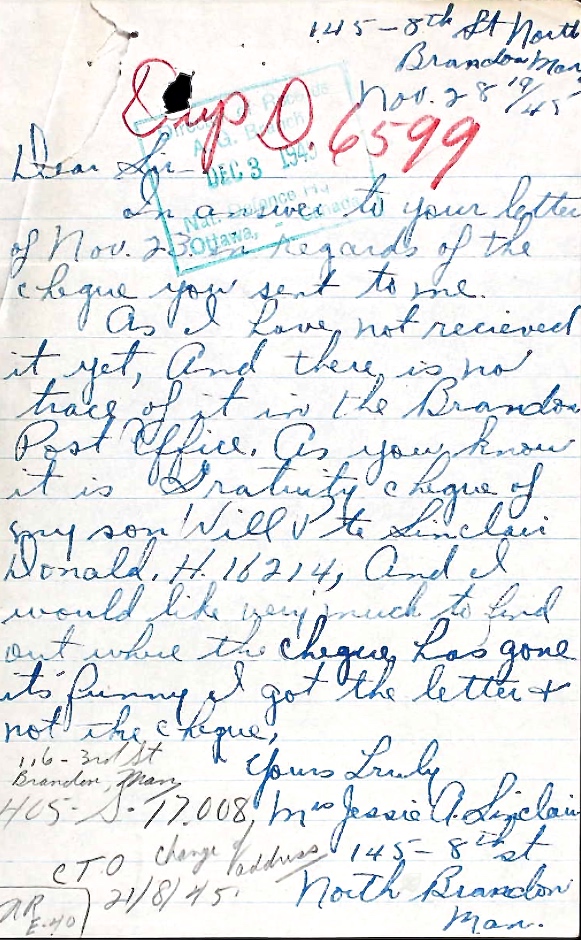 145-8th St North
Brandon Man
Nov. 28 19/45
Dup D. 6599
Director of Records
A.G. Branch
DEC 3 1945
Nat. Defence Hq
Ottawa, - Canada
Dear Sir-
In answer to your letter
of Nov. 23. in regards of the
cheque you sent to me.
As I have not recieved
it yet, And there is no
trace of it in the Brandon
Post Office. As you know
it is Gratuity cheque of
my son Will Pte Sinclair
Donald. H. 16214, And I
would like very much to find
out where the cheque has gone
its funny I got the letter +
not the cheque,
Yours Truly
116-3rd St
Brandon, Man
405-S-17.008,
Mrs Jessie A. Sinclair
145-8th st
North Brandon
Man.
CTO change of address
21/8/45.
E-40